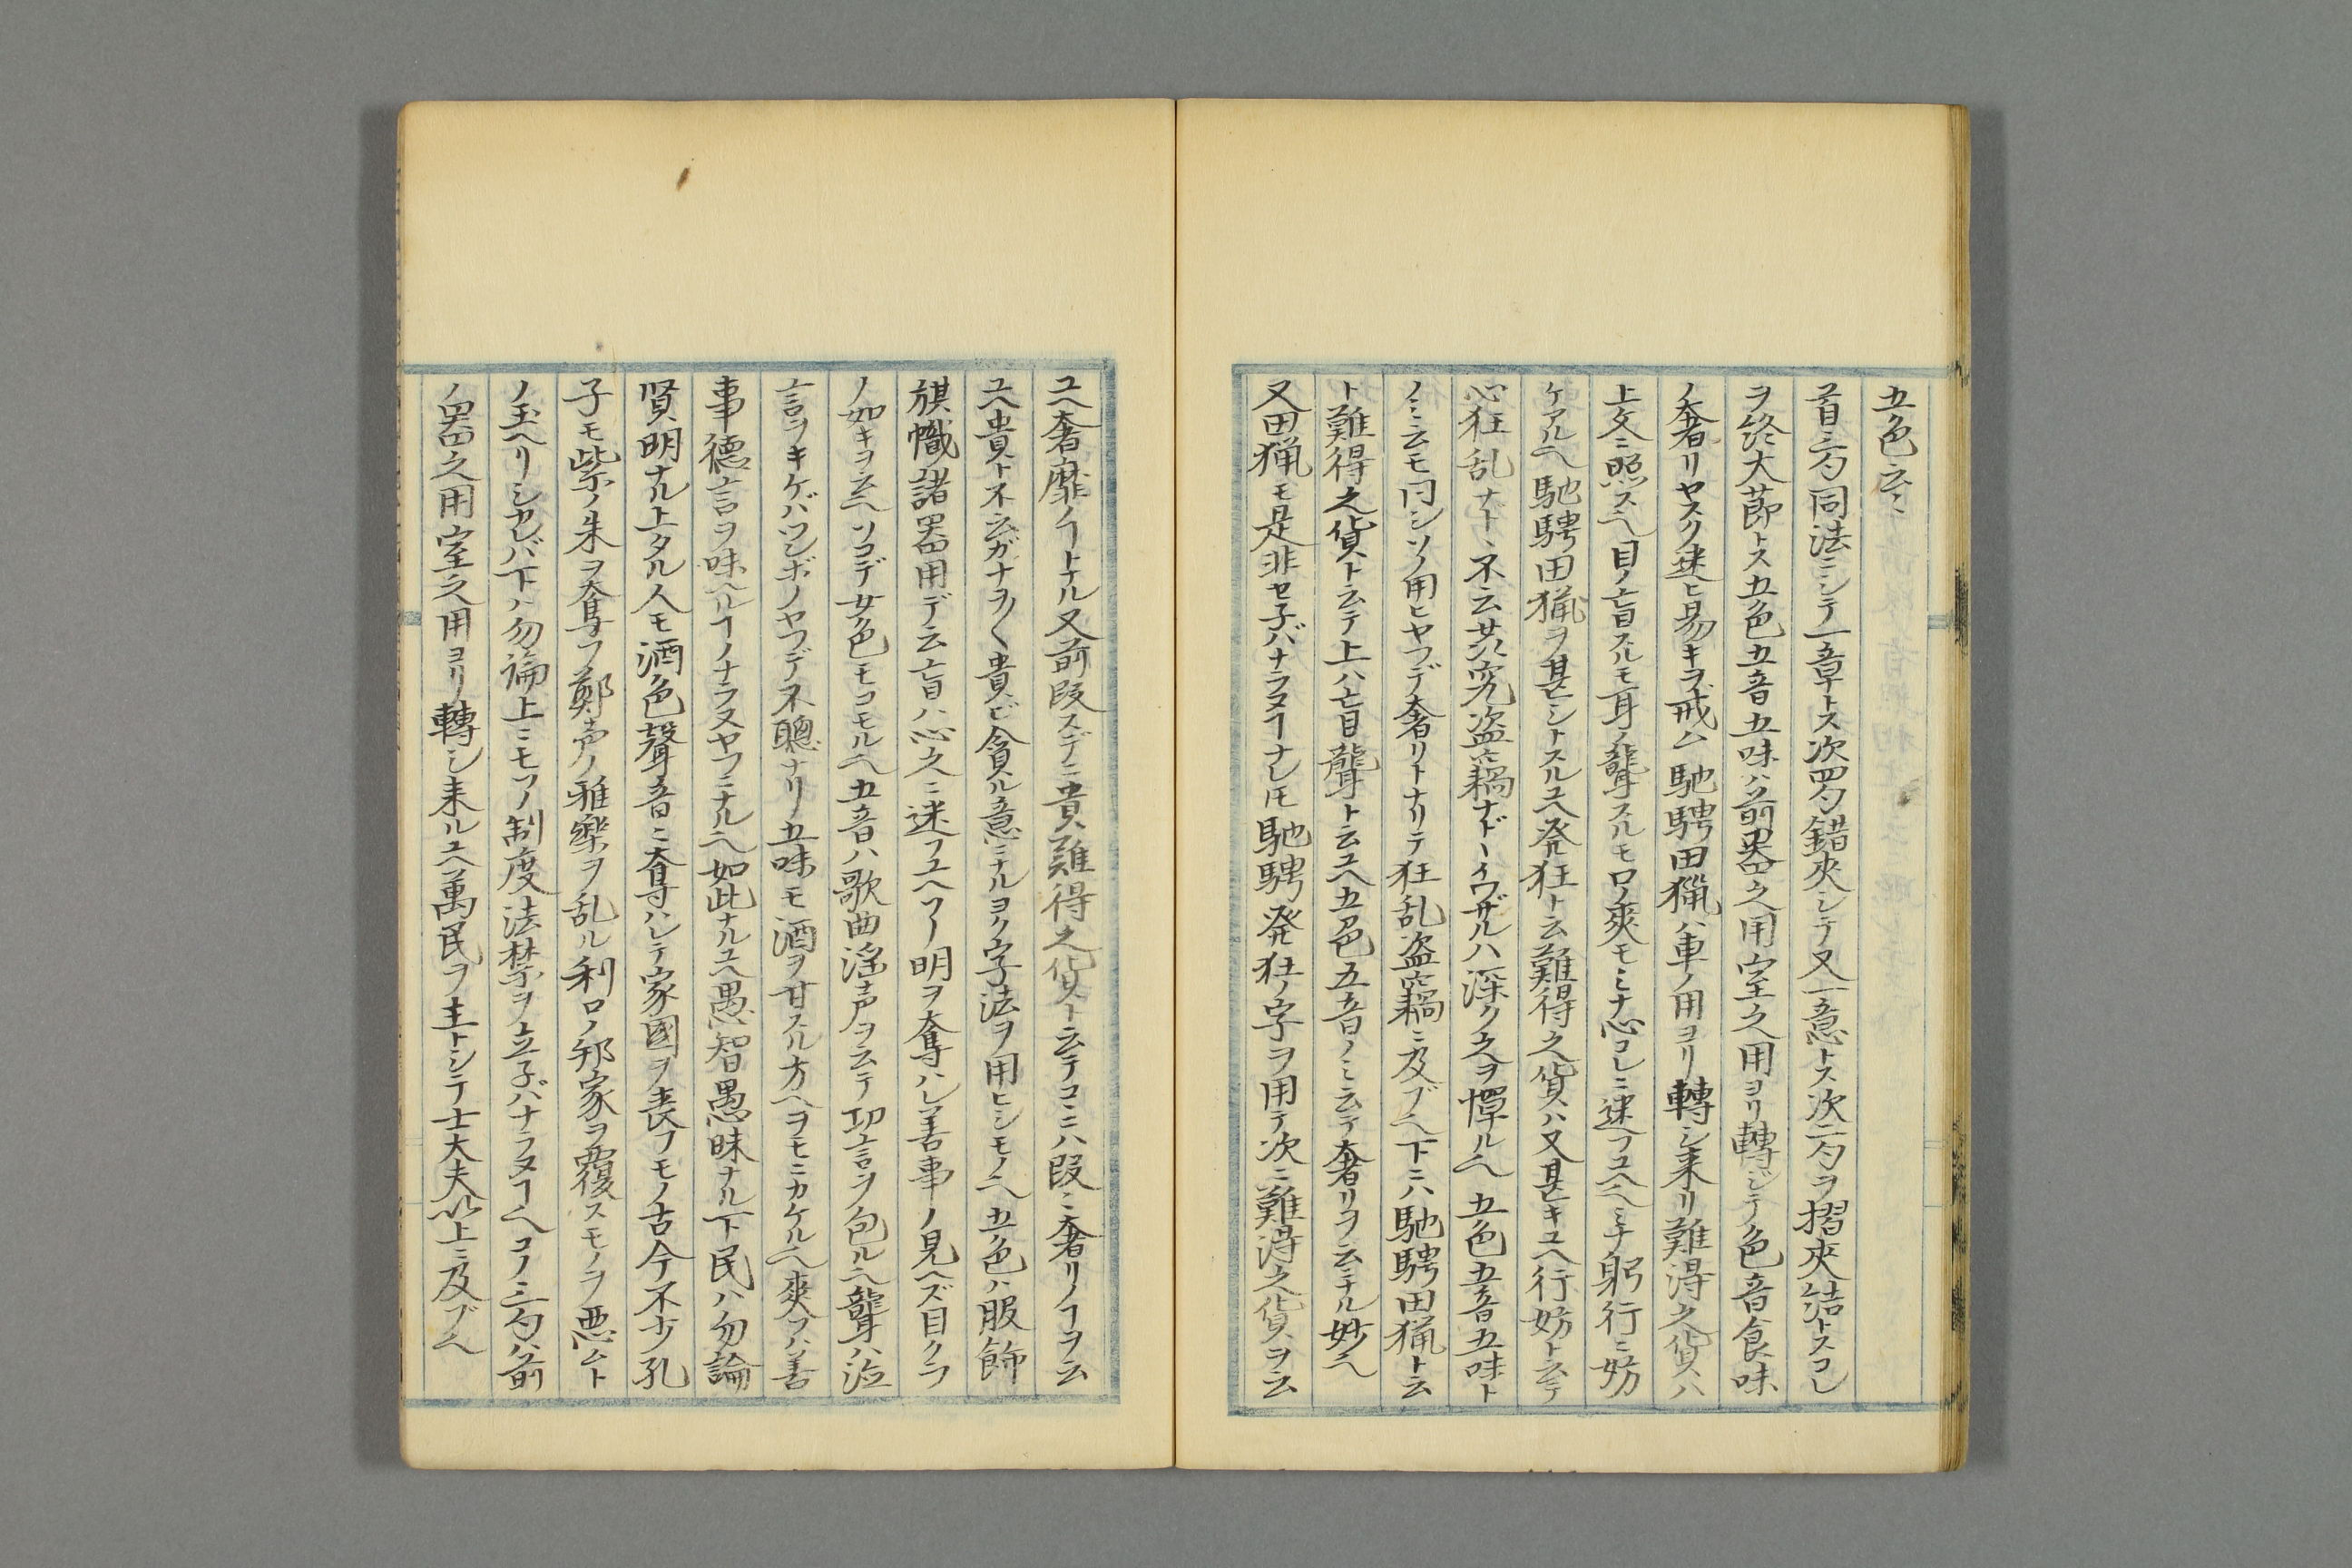 五色云云
首三句同法ニシテ一章トス次四句錯夾シテ又一意トス次二句ヲ摺夾結トスコレ
ヲ終大節トス五色五音五味ハ前器之用室之用ヨリ轉ジテ色音食味
ノ奢リヤスク迷ヒ易キヲ戒ム馳騁田猟ハ車ノ用ヨリ轉シ来リ難得之貨ハ
上文ニ照スヘ目ノ盲スルモ耳ノ聾スルモ口ノ爽モミナ心コレニ迷フユヘヘミナ躬行ニ妨
ケアルヘ馳騁田猟ヲ甚シトスルユヘ発狂ト云難得之貨ハ又甚キユヘ行妨ト云テ
心狂乱ナドヽ不云共究盗竊ナドヽイワザルハ深ク之ヲ憚ルヘ五色五音五味ト
ノミ云モ同シソノ用ヒヤフデ奢リトナリテ狂乱盗竊ニ及ブヘ下ニハ馳騁田猟ト云
ト難得之貨ト云テ上ハ盲聾ト云ユヘ五色五音ノミ云テ奢リヲ云ニナル妙ヘ
又田猟モ是非セ子バナラヌヿナレ𪜈馳騁発狂ノ字ヲ用テ次ニ難得之貨ヲ云
ユヘ奢靡ノヿトナル又前段スデニ貴難得之貨ト云テコヽニハ段ニ奢リノヿヲ云
ユヘ貴ト不云ガナヲ〱貴ビ貪ル意ニナルヨク字法ヲ用ヒシモノヘ五色ハ服飾
旗幟諸器用デ云盲ハ心之ニ迷フユヘソノ明ヲ奪ハレ善事ノ見ヘズ目クラ
ノ如キヲ云ヘソコデ女色モコモルヘ五音ハ歌曲淫声ヲ云テ功言ヲ包ルヘ聾ハ泣
言ヲキケバツンボノヤフデ不聰ナリ五味モ酒ヲ甘スル方ヘヲモニカケルヘ爽フハ善
事徳言ヲ味ヘルヿノナラヌヤフニナルヘ如此ナルユヘ愚智愚昧ナル下民ハ勿論
賢明ナル上タル人モ酒色聲音ニ奪ハレテ家國ヲ喪フモノ古今不少孔
子モ紫ノ朱ヲ奪フ鄭声ノ雅樂ヲ乱ル利口ノ邦家ヲ覆スモノヲ悪ムト
ノ玉ヘリシカレバ下ハ勿論上ニモソノ制度法禁ヲ立子バナラヌヿヘコノ三句ハ前
ノ器之用室之用ヨリ轉シ来ルユヘ萬民ヲ主トシテ士大夫以上ニ及ブヘ